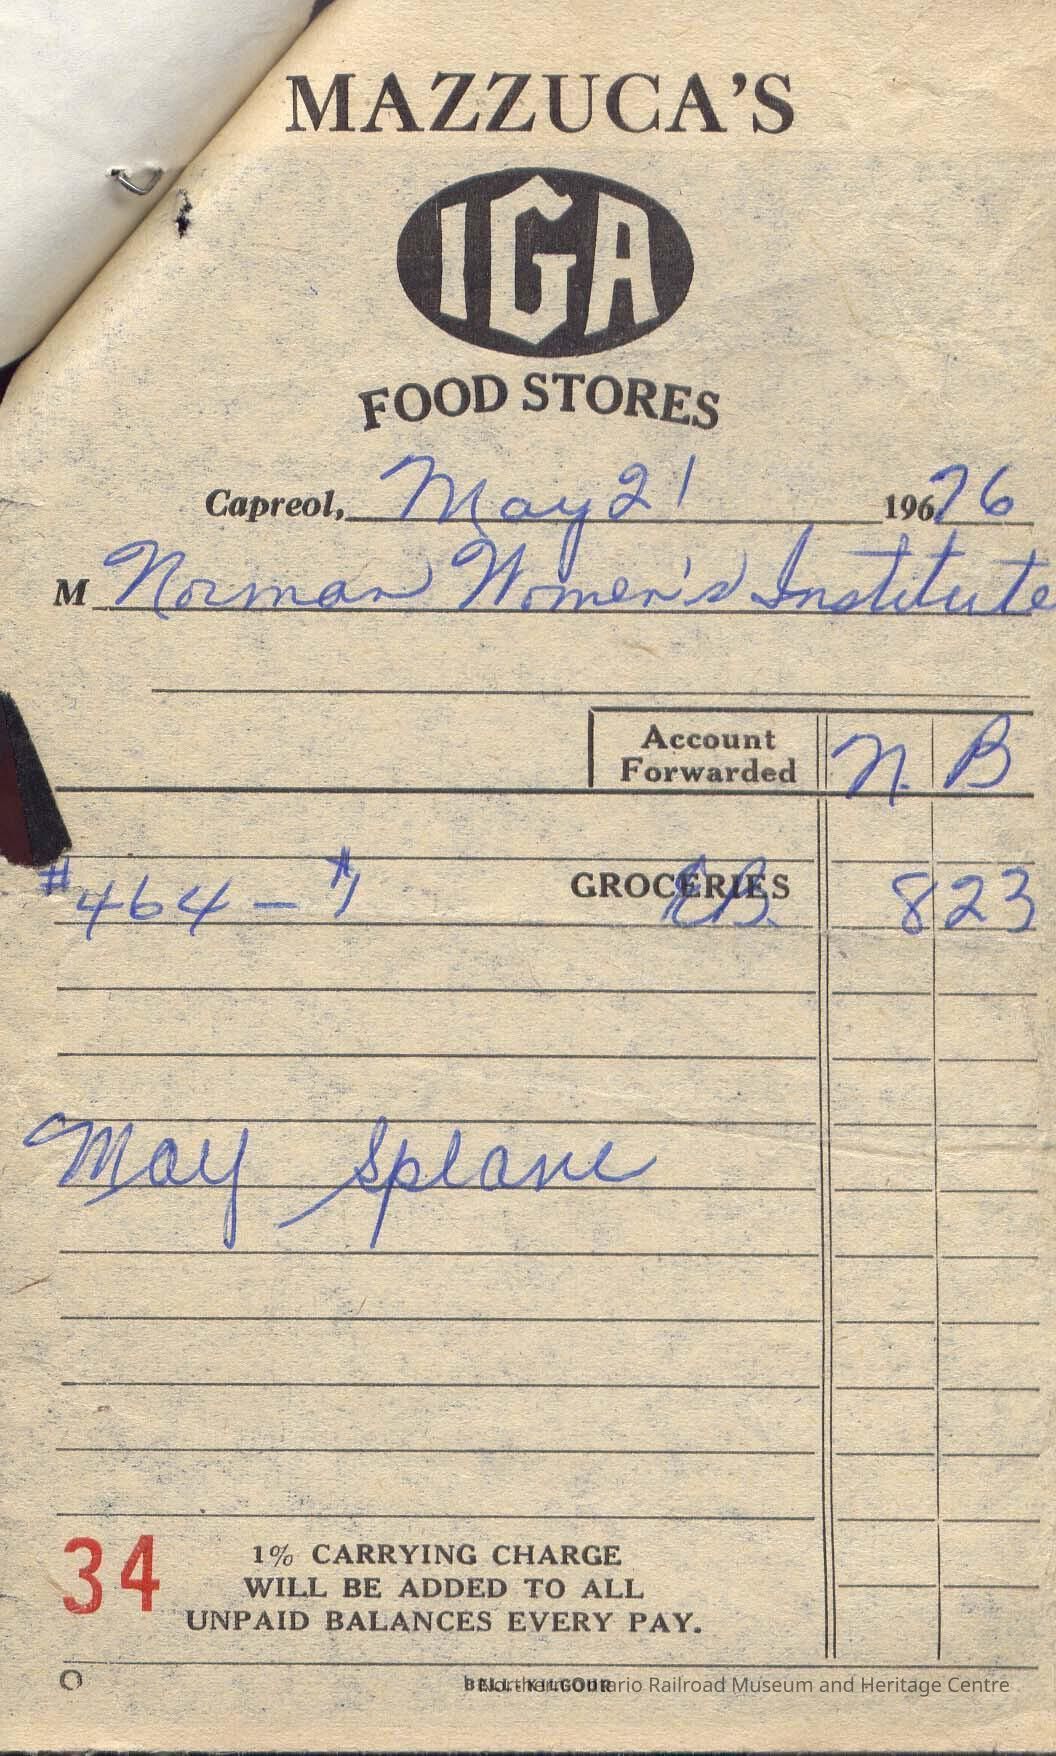 MAZZUCA'S
IGA
FOOD STORES
Capreol, May 21 19676
M Norman Women's Institute
Account Forwarded N. B
#464 - GROCERIES 8 23
May Splane
34
1% CARRYING CHARGE
WILL BE ADDED TO ALL
UNPAID BALANCES EVERY PAY.
BELL-KILGOUR
Northern Ontario Railroad Museum and Heritage Centre